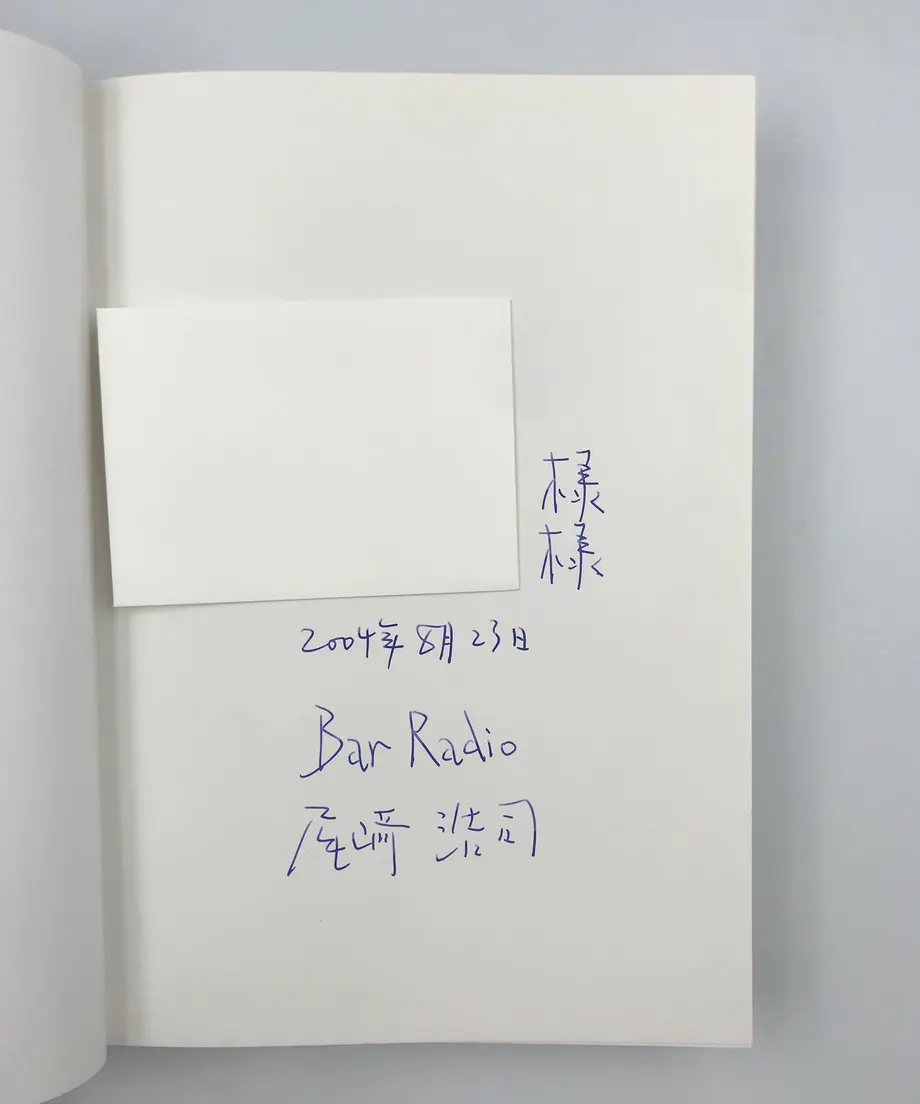 様
様
2004年8月23日
Bar Radio
尾﨑 浩司